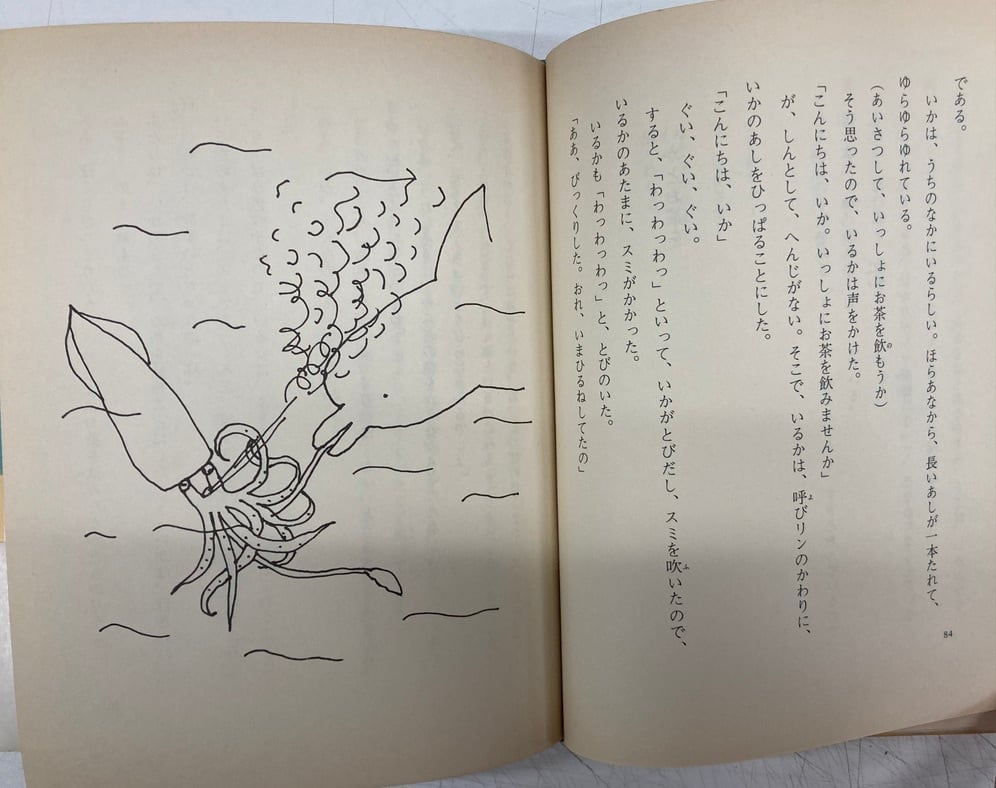 である。
いかは、うちのなかにいるらしい。ほらあなから、長いあしが一本たれて、
ゆらゆらゆれている。
(あいさつして、いっしょにお茶を飲もうか)
そう思ったので、いるかは声をかけた。
「こんにちは、いか。いっしょにお茶を飲みませんか」
が、しんとして、へんじがない。そこで、いるかは、呼びリンのかわりに、
いかのあしをひっぱることにした。
「こんにちは、いか」
ぐい、ぐい、ぐい。
すると、「わっわっわっ」といって、いかがとびだし、スミを吹いたので、
いるかのあたまに、スミがかかった。
いるかも「わっわっわっ」と、とびのいた。
「ああ、びっくりした。おれ、いまひるねしてたの」
84